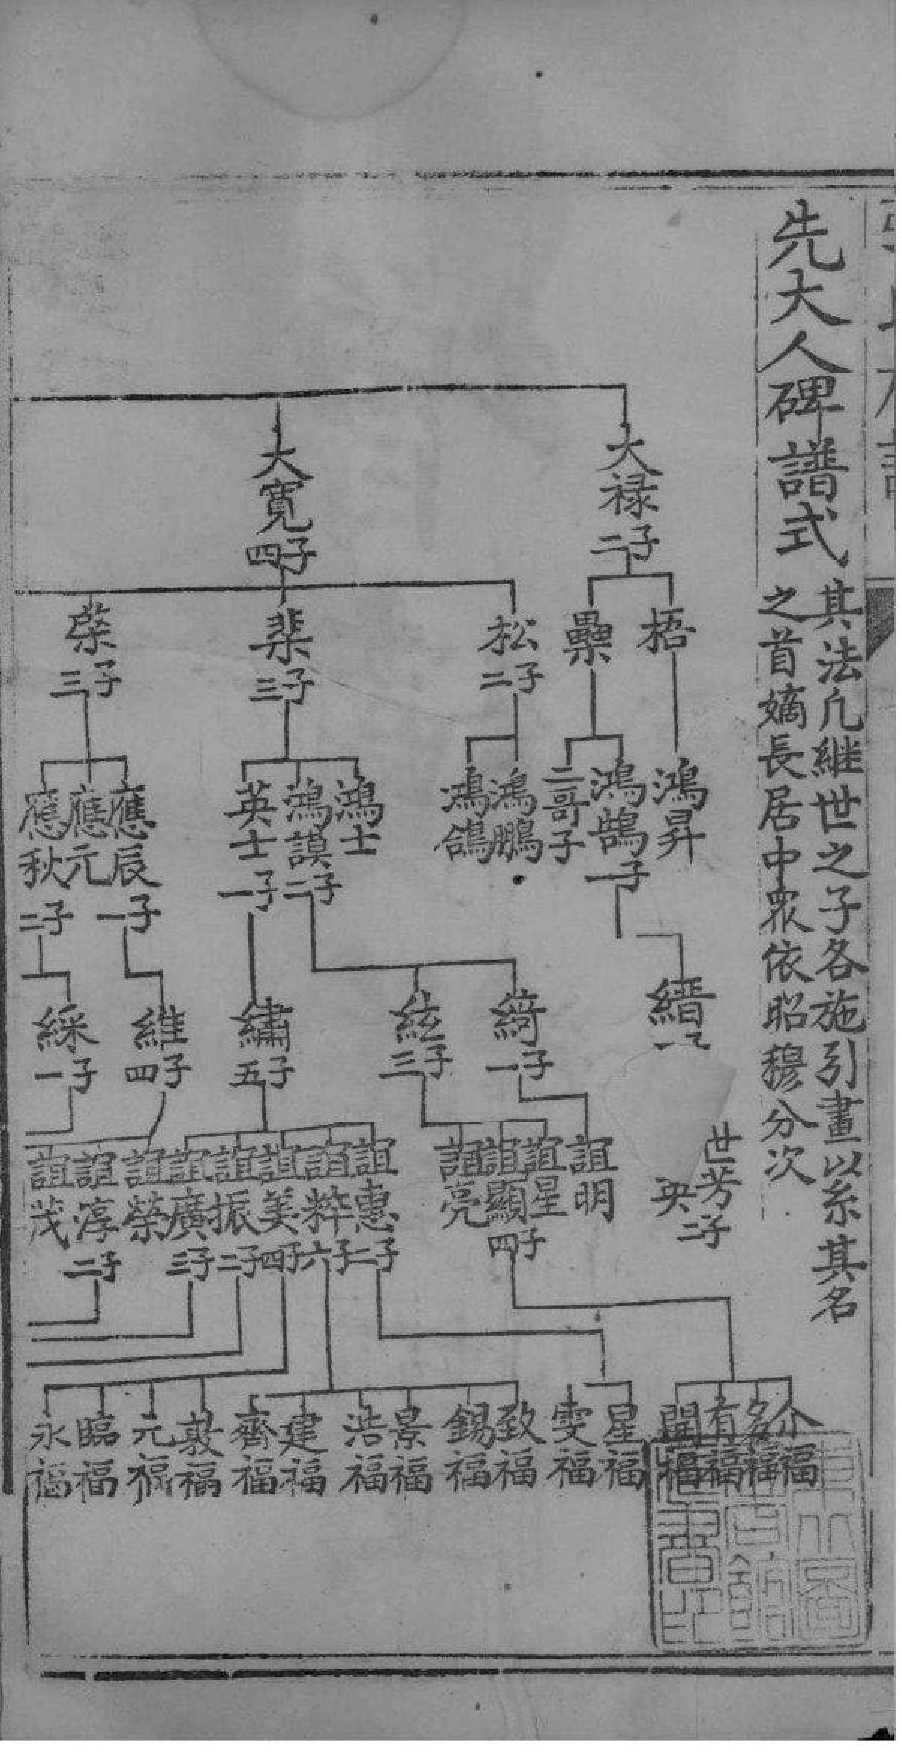 先大人碑譜式
其法凡継世之子各施引畫以系其名
之首嫡長居中眾依昭穆分次
大禄二子
大寛四子
梧
壘
松二子
棐三子
棨三子
鴻昇
鴻鵠一子
二哥子
鴻鵬
鴻鴿
鴻士
鴻謨二子
英士一子
應辰一子
應元
應秋二子
縉
綺一子
絃三子
繡五子
維四子
綵一子
世芳二子
誼明
誼星
誼顯四子
誼亮
誼惠二子
誼粹六子
誼美四子
誼振二子
誼廣三子
誼榮
誼淳二子
誼茂
介福
名福
有福
開福
星福
雯福
致福
錫福
景福
浩福
建福
齊福
敦福
元福
臨福
永福